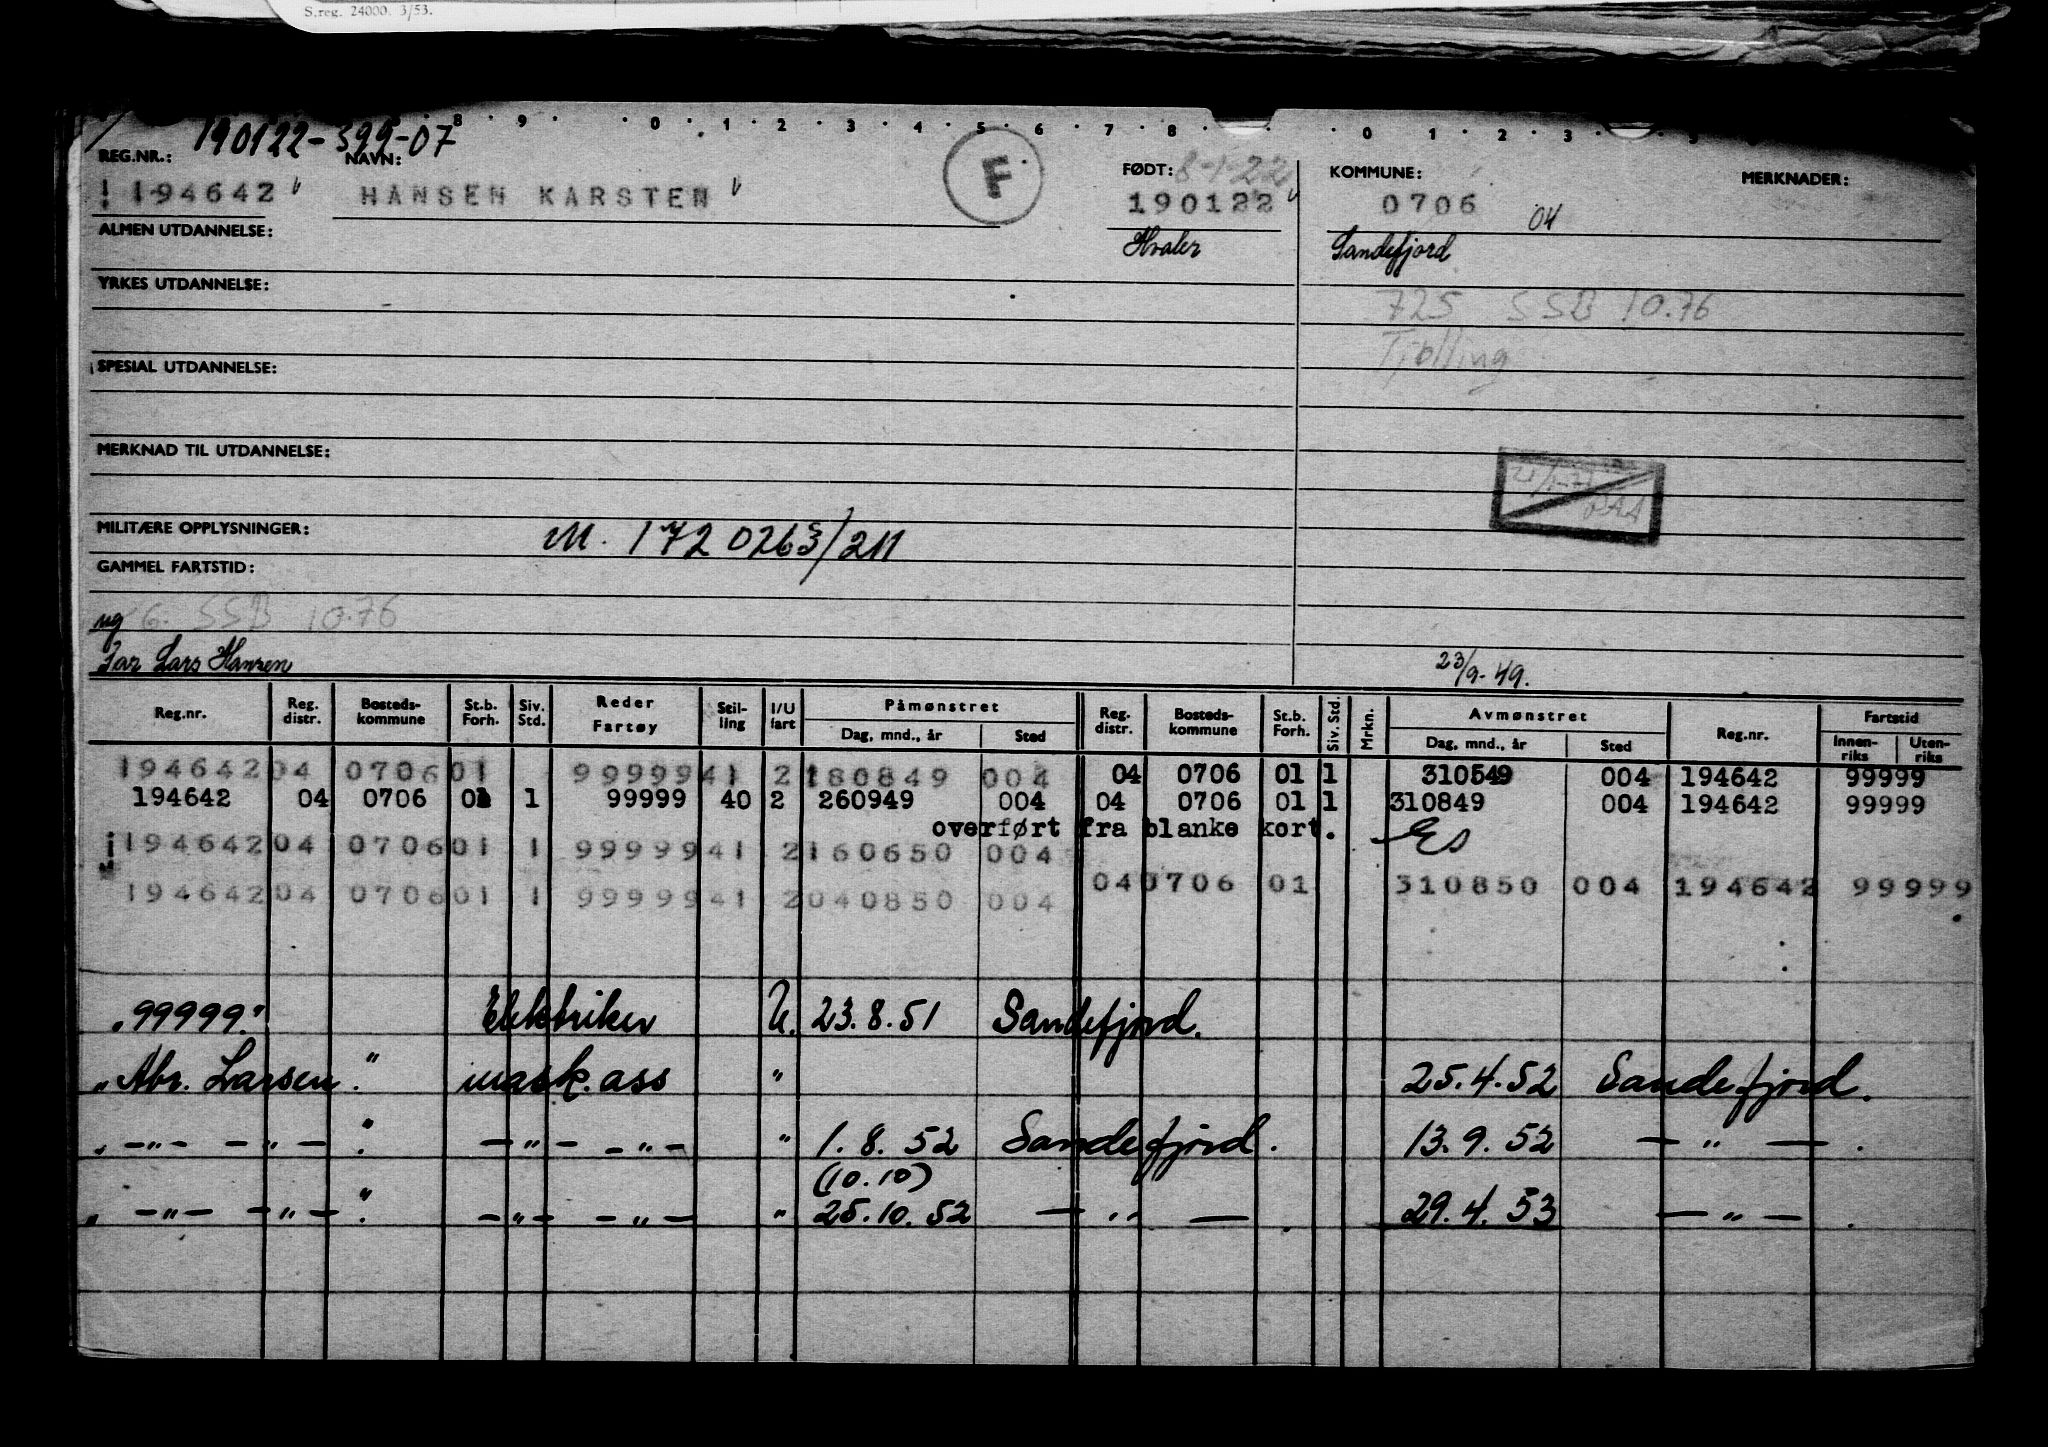 S.reg. 24000. 3/53.
8 9 0 1 2 3 4 5 6 7 8 0 1 2 3
190122-399-07
REG.NR.: NAVN: FØDT: 8-1-22 KOMMUNE: MERKNADER:
194642 HANSEN KARSTEN F 190122 0706 04
ALMEN UTDANNELSE: Hvaler Sandefjord
YRKES UTDANNELSE: 725 SSB 10.76
Tjølling
SPESIAL UTDANNELSE:
MERKNAD TIL UTDANNELSE:
MILITÆRE OPPLYSNINGER: M. 172 0263/211
GAMMEL FARTSTID:
ug 6. SSB 10.76
Far Lars Hansen 23/9-49.
Reg.nr. Reg. distr. Bosteds-kommune St.b. Forh. Siv. Std. Reder Fartøy Stil-ling I/U fart Påmønstret Dag, mnd., år Sted Reg. distr. Bosteds-kommune St.b. Forh. Siv. Std. Mrkn. Avmønstret Dag, mnd., år Sted Reg.nr. Fartstid Innen-riks Uten-riks
194642 04 0706 01 99999 41 2 180849 004 04 0706 01 1 310549 004 194642 99999
194642 04 0706 01 1 99999 40 2 260949 004 04 0706 01 1 310849 004 194642 99999
overført fra blanke kort. Es
194642 04 0706 01 1 99999 41 2 160650 004
04 0706 01 310850 004 194642 99999
194642 04 0706 01 1 99999 41 2 040850 004
"99999." Elektriker U. 23.8.51 Sandefjord.
"Abr. Larsen." mask. ass " 25.4.52 Sandefjord.
" -"- -"- ". -"- -"- " 1.8.52 Sandefjord. 13.9.52 -"-.
(10.10)
" -"- -"- ". -"- -"- " 25.10.52 -"-. 29.4.53 -"-.